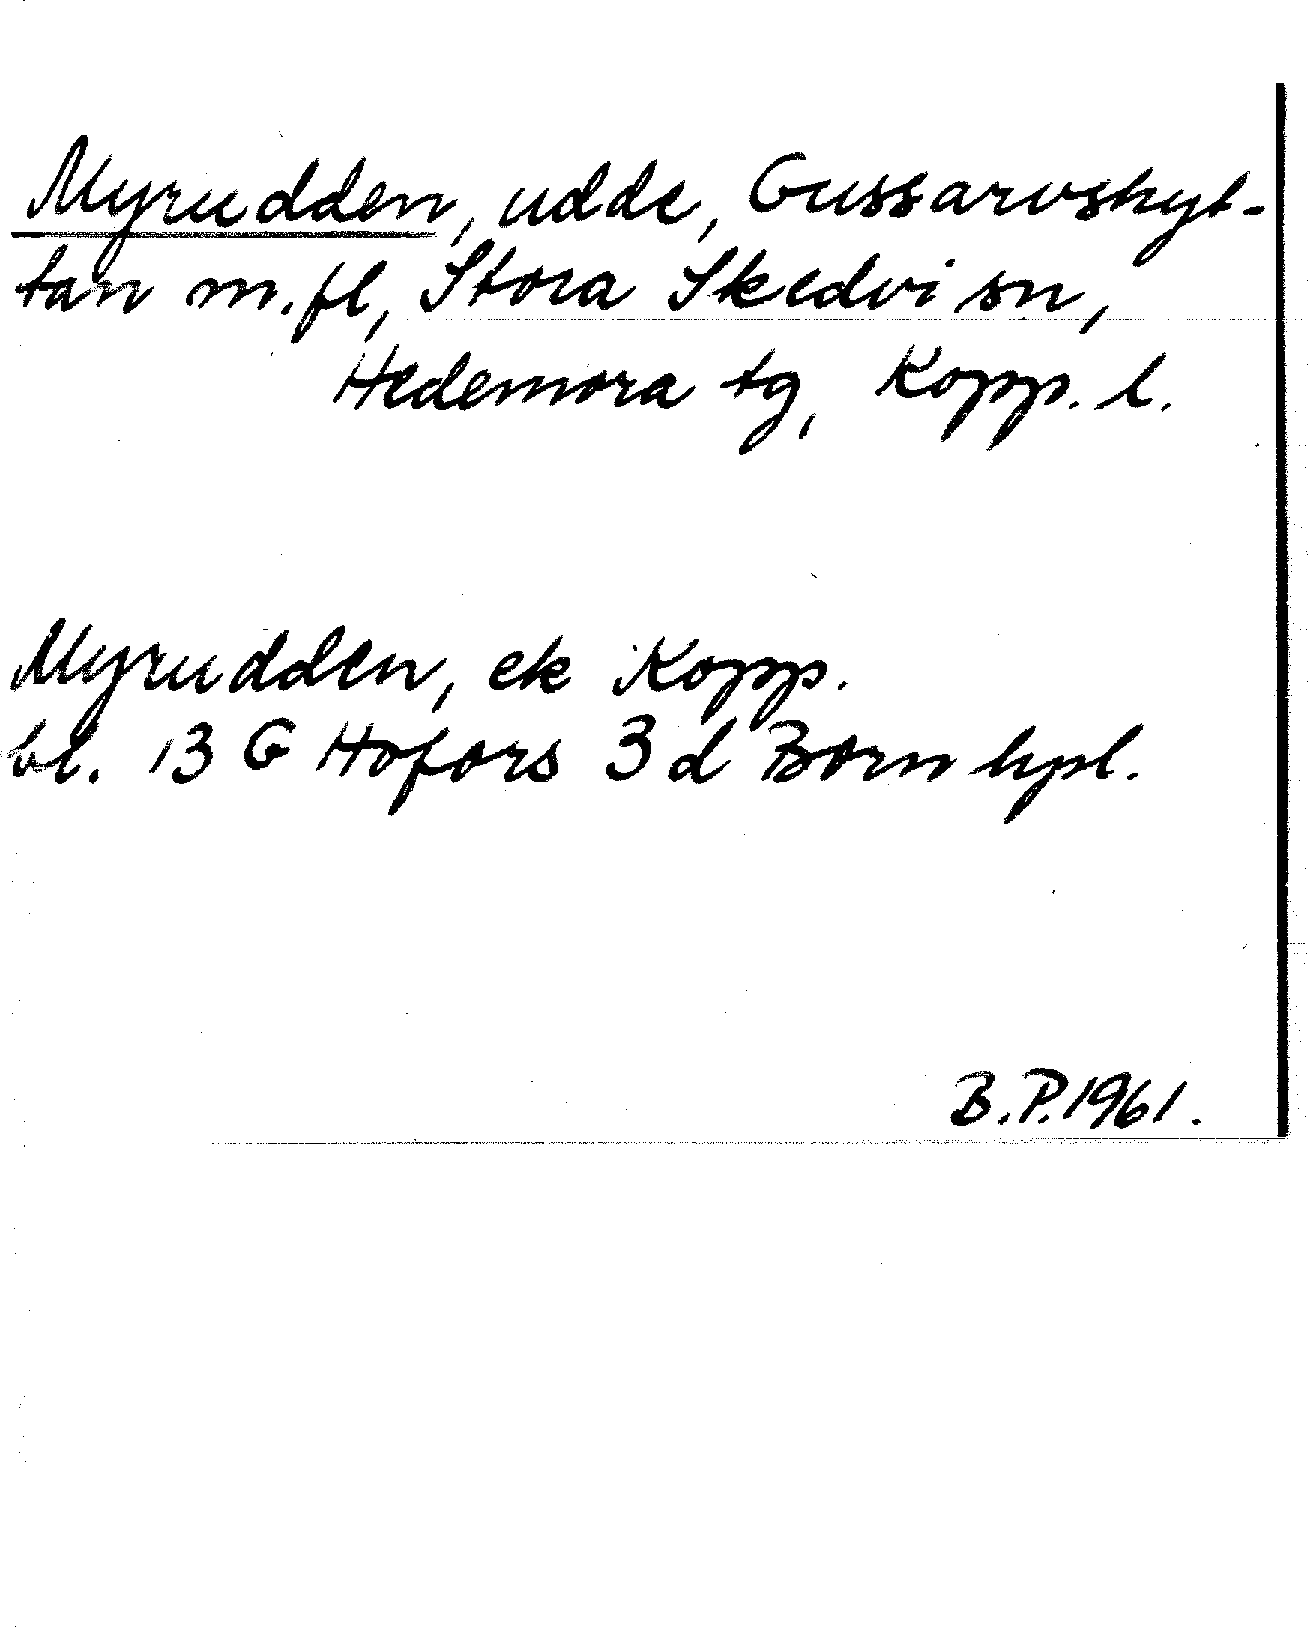 Myrudden, udde, Gussarvshyt-
tan m.fl, Stora Skedvi sn,
Hedemora tg, Kopp. l.
Myrudden, ek Kopp.
bl. 13 G Hofors 3 d Born hpl.
B.P.1961.